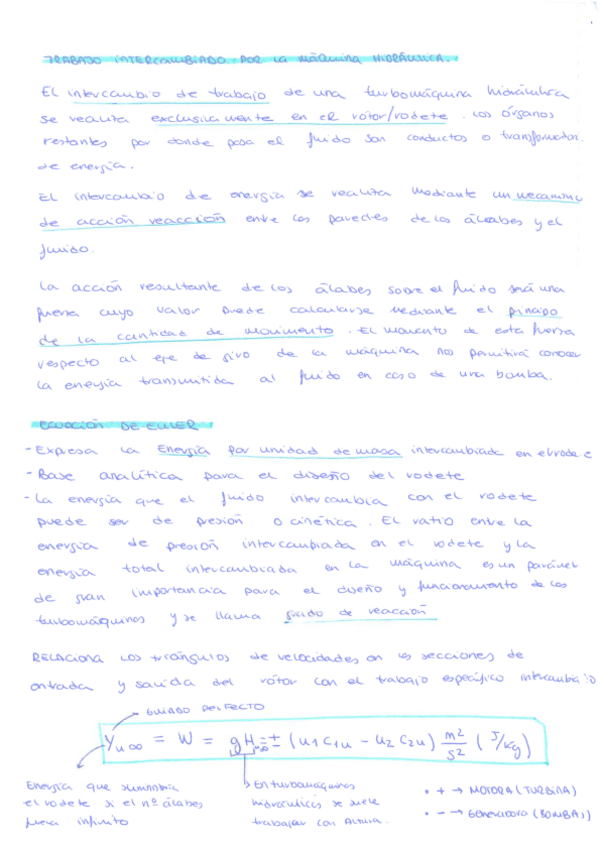 TRABAJO INTERCAMBIADO POR LA MÁQUINA HIDRÁULICA.
El intercambio de trabajo de una turbomáquina hidráulica
se realiza exclusivamente en el rotor/rodete. Los órganos
restantes por donde pasa el fluido son conductos o transformador.
de energía.
El intercambio de energía se realiza mediante un mecanismo
de acción reacción entre las paredes de los álabes y el
fluido.
La acción resultante de los álabes sobre el fluido será una
fuerza cuyo valor puede calcularse mediante el principio
de la cantidad de movimiento. El momento de esta fuerza
respecto al eje de giro de la máquina nos permitirá conocer
la energía transmitida al fluido en caso de una bomba.
ECUACIÓN DE EULER
- Expresa la Energía por unidad de masa intercambiada en el rodete
- Base analítica para el diseño del rodete
- La energía que el fluido intercambia con el rodete
puede ser de presión o cinética. El ratio entre la
energía de presión intercambiada en el rodete y la
energía total intercambiada en la máquina es un parámet
de gran importancia para el diseño y funcionamiento de las
turbomáquinas y se llama grado de reacción
RELACIONA los triángulos de velocidades en las secciones de
entrada y salida del rotor con el trabajo específico intercambiado
GUIADO PERFECTO
Yu∞ = W = gHu∞ = ± (u1 c1u - u2 c2u) m²/s² (J/Kg)
Energía que suministra
el rodete si el nº álabes
fuera infinito
En turbomáquinas
hidráulicas se suele
trabajar con Altura.
• + → MOTORA (TURBINA)
• - → Generadora (BOMBAS)